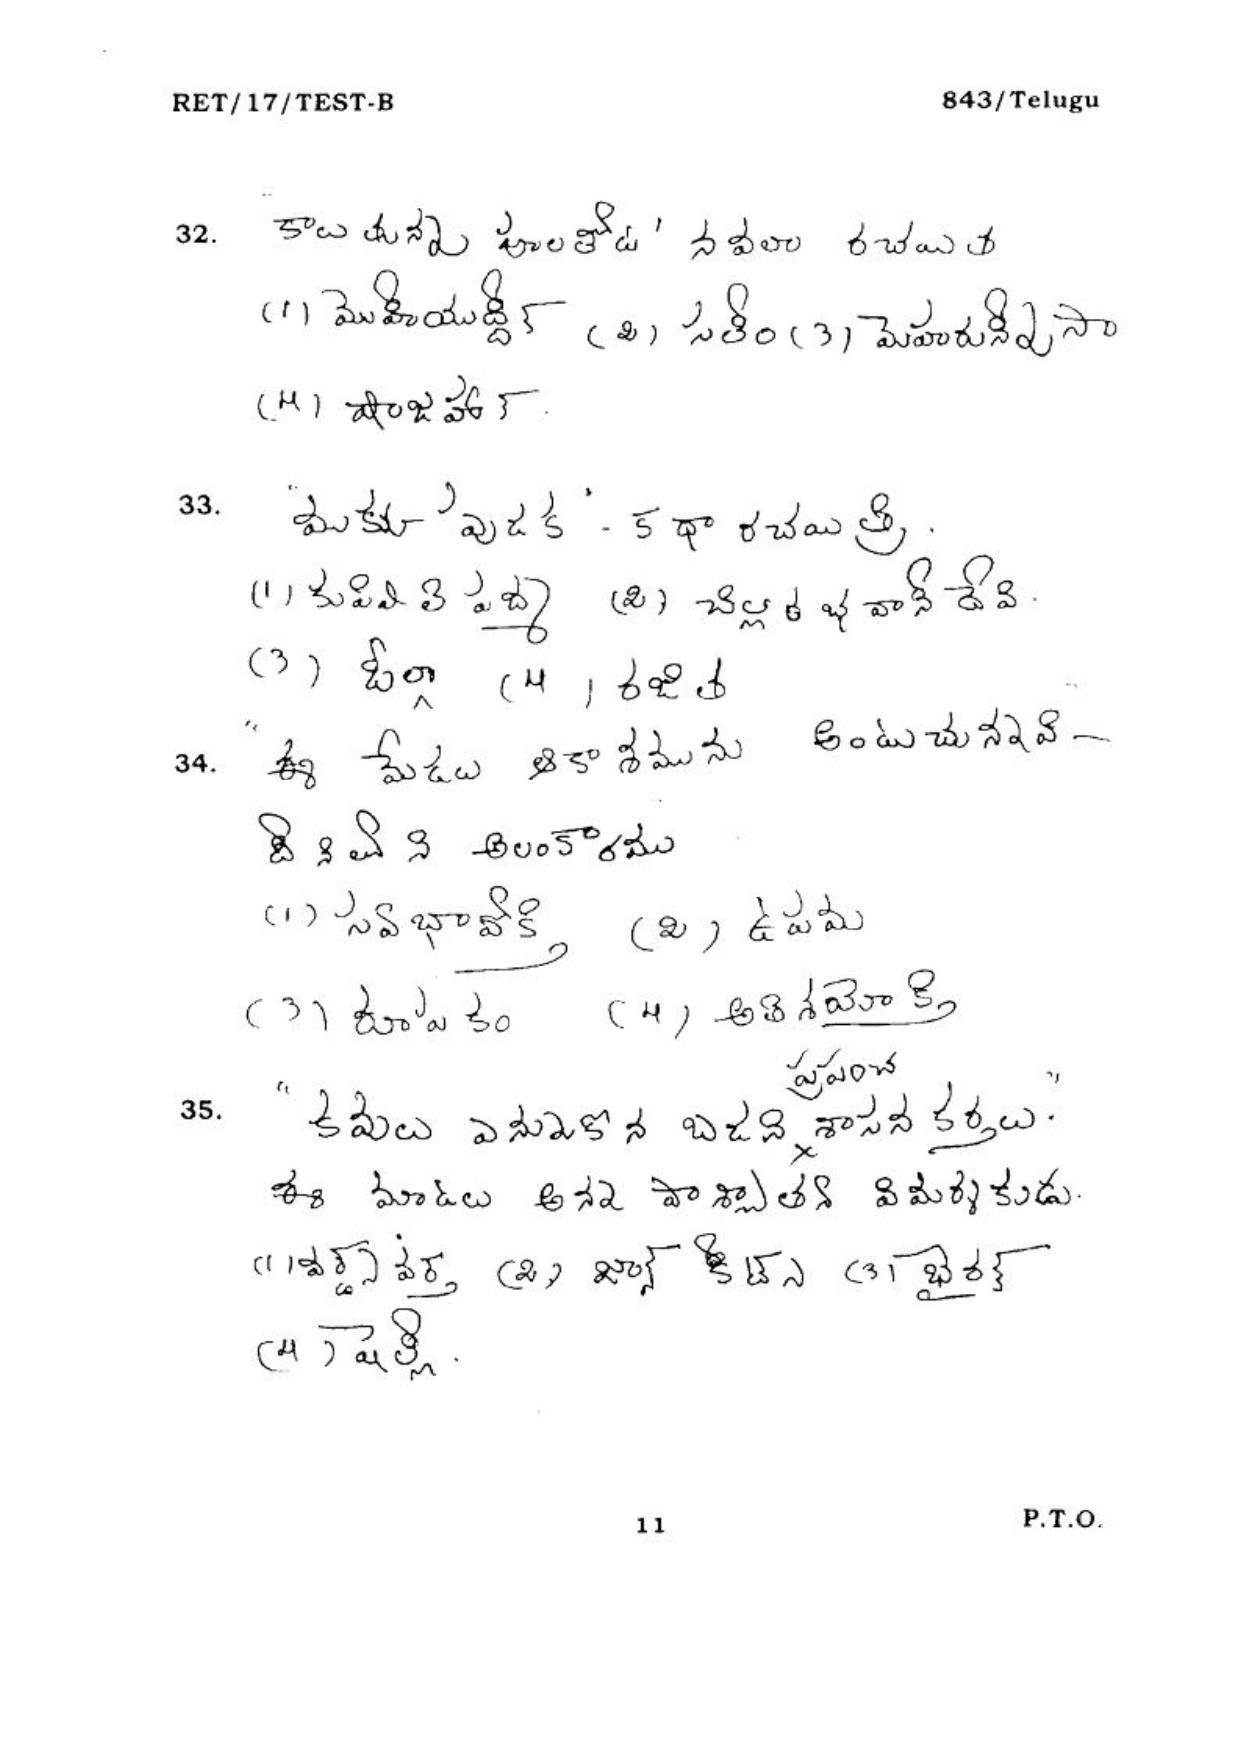 RET/17/TEST-B 843/Telugu
32. కాలుతున్న పూలతోట' నవలా రచయిత
(1) మొహియుద్దీన్ (2) సలీం (3) మెహరున్నీసా
(4) షాంజహాన్.
33. "ముక్కు పుడక' - కథా రచయిత్రి.
(1) కుప్పిలి పద్మ (2) చిల్లర భవానీ దేవి.
(3) ఓల్గా (4) రజిత
34. "ఈ మేడలు ఆకాశమును అంటుచున్నవి" –
దీనిలోని అలంకారము
(1) స్వభావోక్తి (2) ఉపమ
(3) రూపకం (4) అతిశయోక్తి
35. "కవులు ఎన్నుకొనబడని ప్రపంచ శాసన కర్తలు."
ఈ మాటలు అన్న పాశ్చాత్య విమర్శకుడు.
(1) వర్డ్స్ వర్త్ (2) జాన్ కీట్స్ (3) బైరన్
(4) షెల్లీ.
11 P.T.O.